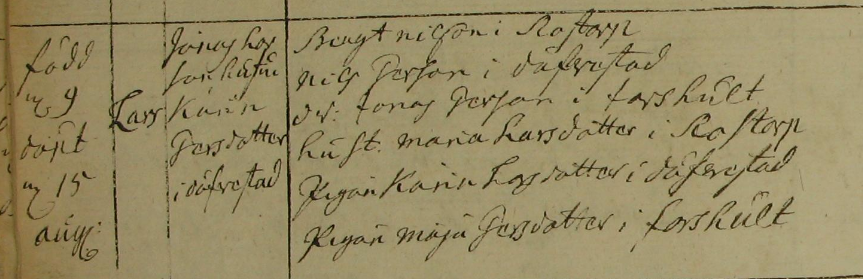 född
9
döpt
15
aug:
Lars
Jonas Lars
son hustru
Karin
Persdotter
i däfrestad
Bengt nilson i Rostorp
nils Person i däfrestad
dr: Jonas Person i forshult
hust. maria Larsdotter i Rostorp
Pigan Karin Larsdotter i däfrestad
Pigan maja Persdotter i forshult